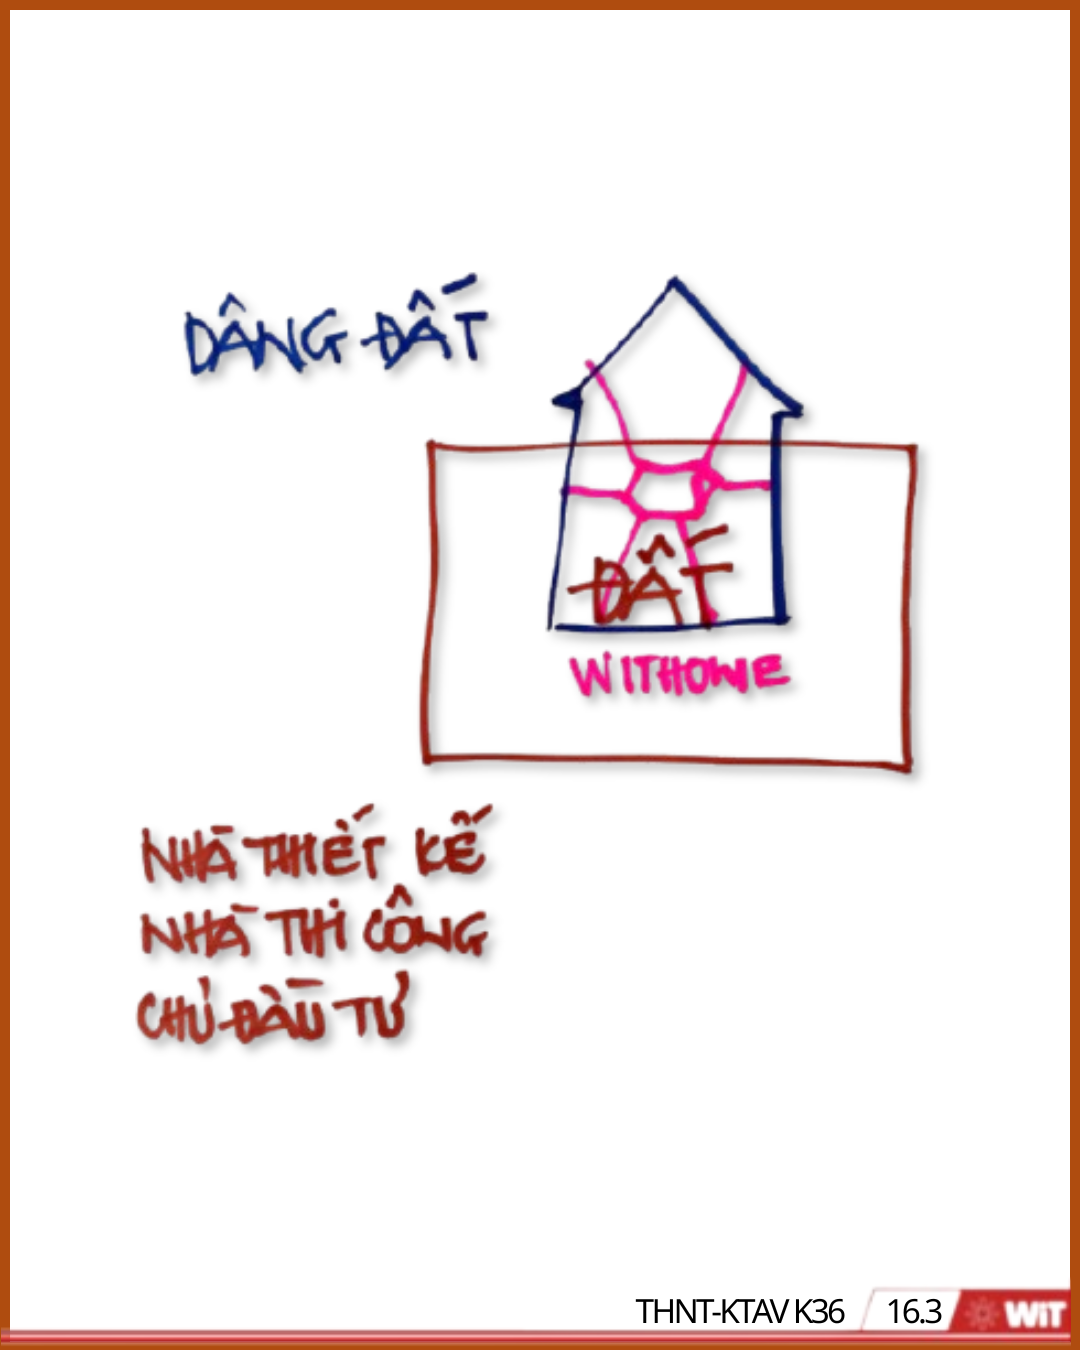 DÂNG ĐẤT
ĐẤT
WITHOME
NHÀ THIẾT KẾ
NHÀ THI CÔNG
CHỦ ĐẦU TƯ
THNT-KTAV K36 16.3 WiT